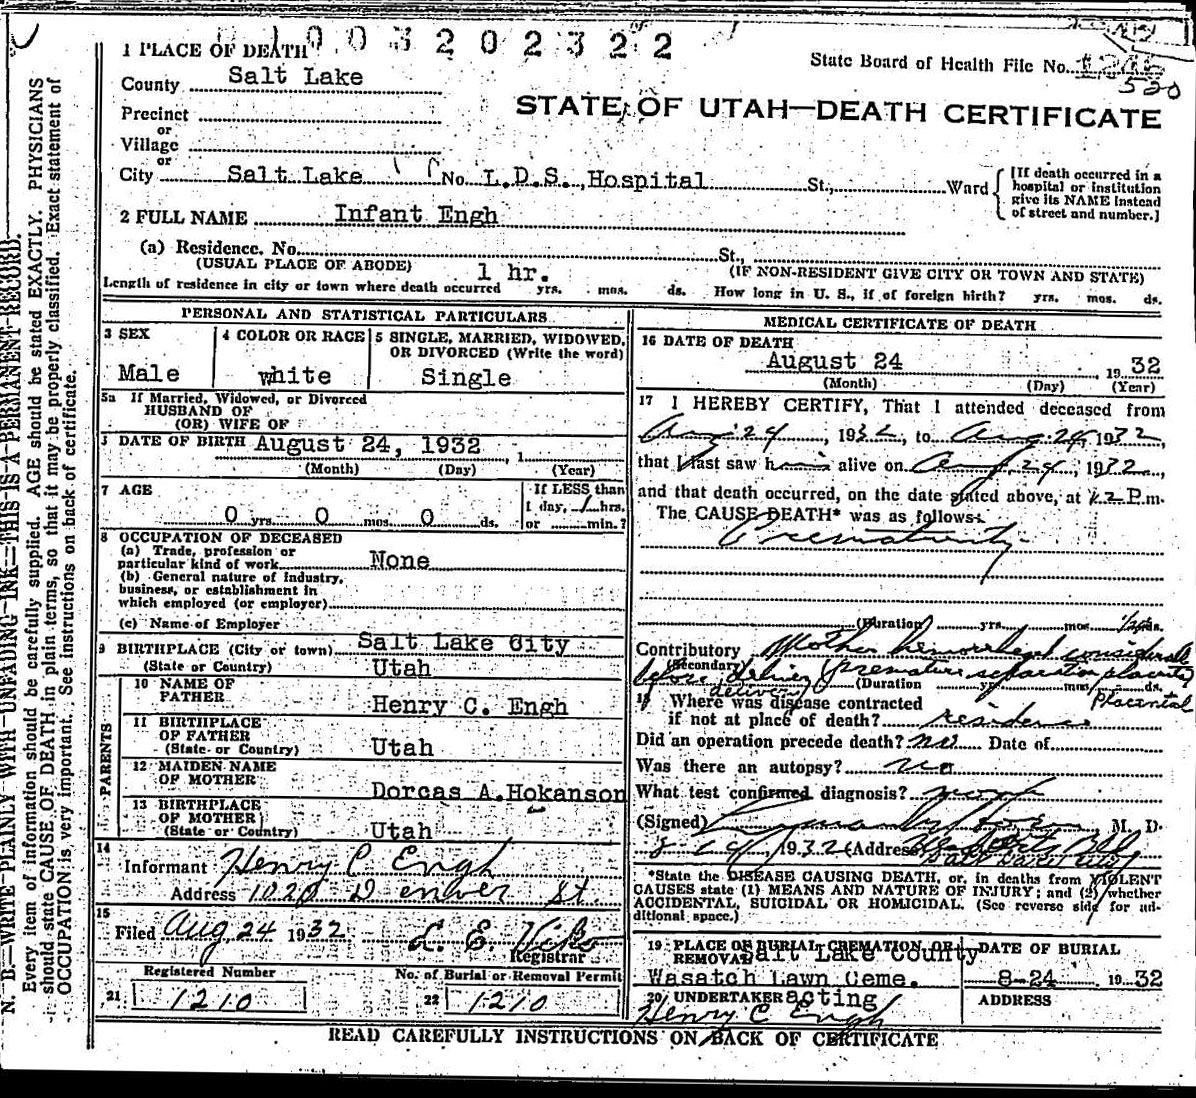 1003202322
1 PLACE OF DEATH
State Board of Health File No.
520
County Salt Lake
STATE OF UTAH—DEATH CERTIFICATE
Precinct
or
Village
or
City Salt Lake No. L.D.S., Hospital St., Ward
[If death occurred in a
hospital or institution
give its NAME instead
of street and number.]
2 FULL NAME Infant Engh
(a) Residence. No. St.,
(USUAL PLACE OF ABODE) (IF NON-RESIDENT GIVE CITY OR TOWN AND STATE)
1 hr.
Length of residence in city or town where death occurred yrs. mos. ds. How long in U. S., if of foreign birth? yrs. mos. ds.
PERSONAL AND STATISTICAL PARTICULARS
3 SEX
Male
4 COLOR OR RACE
white
5 SINGLE, MARRIED, WIDOWED,
OR DIVORCED (Write the word)
Single
5a If Married, Widowed, or Divorced
HUSBAND OF
(OR) WIFE OF
DATE OF BIRTH August 24, 1932, 1
(Month) (Day) (Year)
7 AGE
0 yrs. 0 mos. 0 ds.
If LESS than
1 day, 1 hrs.
or min.?
8 OCCUPATION OF DECEASED
(a) Trade, profession or
particular kind of work None
(b) General nature of industry,
business, or establishment in
which employed (or employer)
(c) Name of Employer
9 BIRTHPLACE (City or town) Salt Lake City
(State or Country) Utah
PARENTS
10 NAME OF
FATHER Henry C. Engh
11 BIRTHPLACE
OF FATHER
(State or Country) Utah
12 MAIDEN NAME
OF MOTHER Dorcas A. Hokanson
13 BIRTHPLACE
OF MOTHER
(State or Country) Utah
14
Informant Henry C Engh
Address 1020 Denver St.
15
Filed Aug 24 1932 L. E. Viko
Registrar
Registered Number
21 1210
No. of Burial or Removal Permit
22 1210
MEDICAL CERTIFICATE OF DEATH
16 DATE OF DEATH
August 24 1932
(Month) (Day) (Year)
17 I HEREBY CERTIFY, That I attended deceased from
Aug 24, 1932, to Aug. 24, 1932,
that I last saw him alive on Aug. 24, 1932,
and that death occurred, on the date stated above, at 12 P.m.
The CAUSE DEATH* was as follows:
Prematurity
(Duration yrs. mos. ds.
Contributory Mother hemorrhaged considerable
(Secondary)
before delivery (premature separation placenta)
delivery
(Duration yrs. mos. ds.
Placental
18 Where was disease contracted
if not at place of death? residence
Did an operation precede death? no Date of
Was there an autopsy? no
What test confirmed diagnosis?
(Signed) M. D.
1932 (Address
Salt Lake City
*State the DISEASE CAUSING DEATH, or, in deaths from VIOLENT
CAUSES state (1) MEANS AND NATURE OF INJURY; and (2) whether
ACCIDENTAL, SUICIDAL OR HOMICIDAL. (See reverse side for ad-
ditional space.)
19 PLACE OF BURIAL, CREMATION OR
REMOVAL Salt Lake County
Wasatch Lawn Ceme.
DATE OF BURIAL
8-24 1932
20 UNDERTAKER acting
Henry C Engh
ADDRESS
READ CAREFULLY INSTRUCTIONS ON BACK OF CERTIFICATE
N. B.—WRITE PLAINLY WITH UNFADING INK—THIS IS A PERMANENT RECORD.
Every item of information should be carefully supplied. AGE should be stated EXACTLY. PHYSICIANS
should state CAUSE OF DEATH in plain terms, so that it may be properly classified. Exact statement of
OCCUPATION is very important. See instructions on back of certificate.